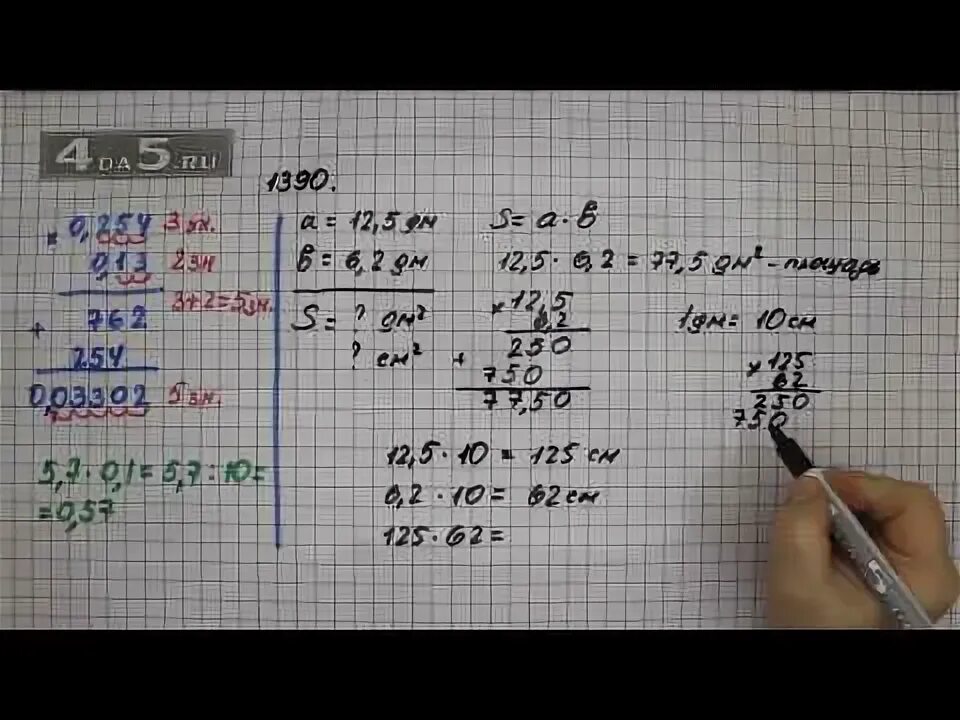 4 DA 5.RU
1390.
× 0,254 3 зн.
0,13 2 зн
3+2=5 зн.
+ 762
254
0,03302 5 зн.
5,7 · 0,1 = 5,7 : 10 =
= 0,57
a = 12,5 дм
в = 6,2 дм
S = ? дм²
? см²
S = a · в
12,5 · 6,2 = 77,5 дм² - площадь
× 12,5
6,2
+ 250
750
77,50
1 дм = 10 см
× 125
62
250
750
12,5 · 10 = 125 см
6,2 · 10 = 62 см
125 · 62 =